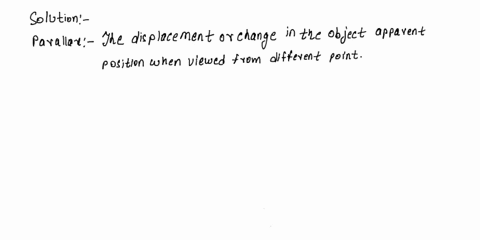 Solution:-
Parallax:- The displacement or change in the object apparent
position when viewed from different point.